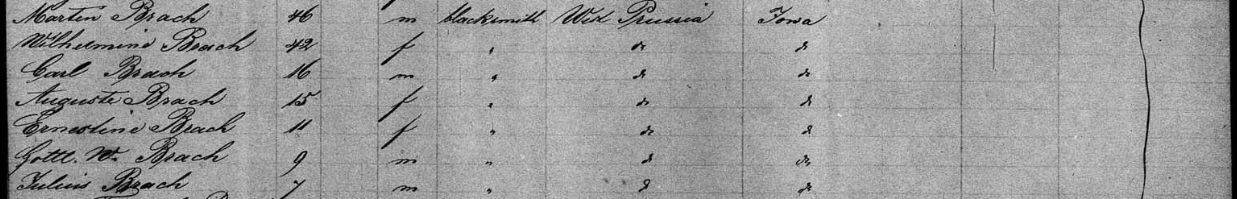 Marten Brach 46 m blacksmith West Prussia Iowa
Wilhelmine Brach 42 f " do do
Carl Brach 16 m " do do
Auguste Brach 15 f " do do
Ernestine Brach 11 f " do do
Gottl. W. Brach 9 m " do do
Julius Brach 7 m " do do